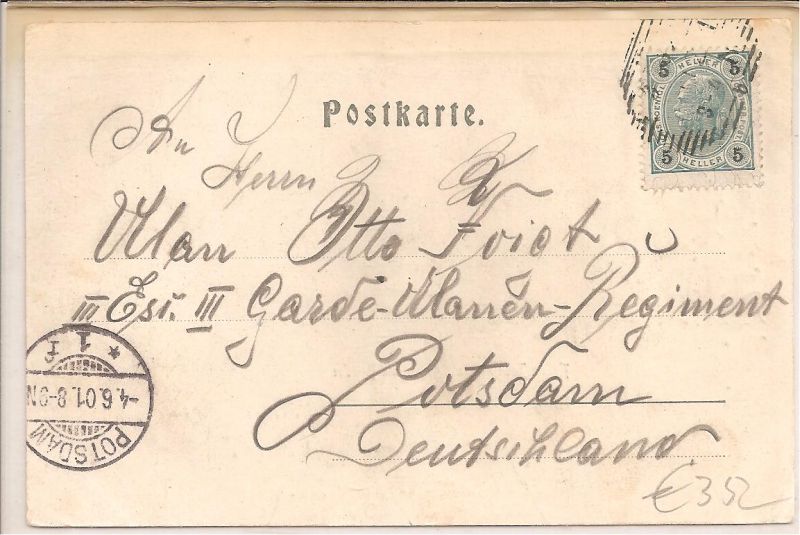 Postkarte.
5 HELLER 5
5 HELLER 5
An
Herrn
Ulan Otto Voigt
III Esc. III Garde-Ulanen-Regiment
Potsdam
Deutschland.
* 1 f
-4.6.01.8-9N
POTSDAM
€ 352